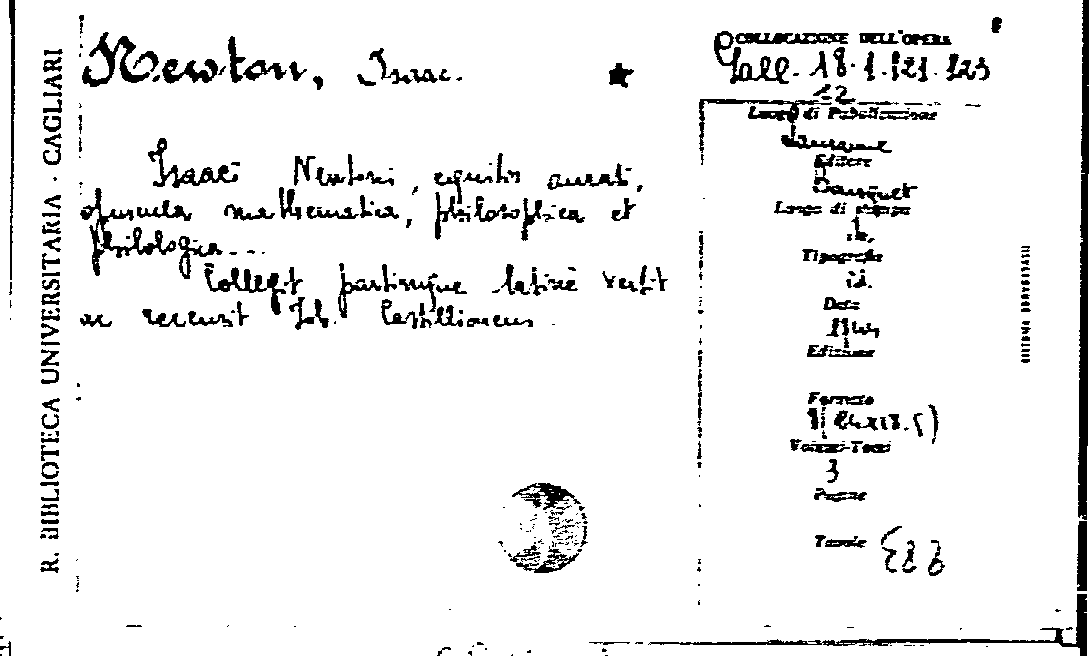 R. BIBLIOTECA UNIVERSITARIA · CAGLIARI
Newton, Isaac.
Isaaci Newtoni, equitis aurati,
opuscula mathematica, philosophica et
philologica...
Collegit partimque latine vertit
ac recensuit Joh. Castillioneus
COLLOCAZIONE DELL'OPERA
Gall. 18.1.121.123
Luogo di Pubblicazione
Lausanne
Editore
Bousquet
Luogo di stampa
id.
Tipografia
id.
Data
Edizione
Formato
Volumi-Tomi
3
Pagine
Tavole